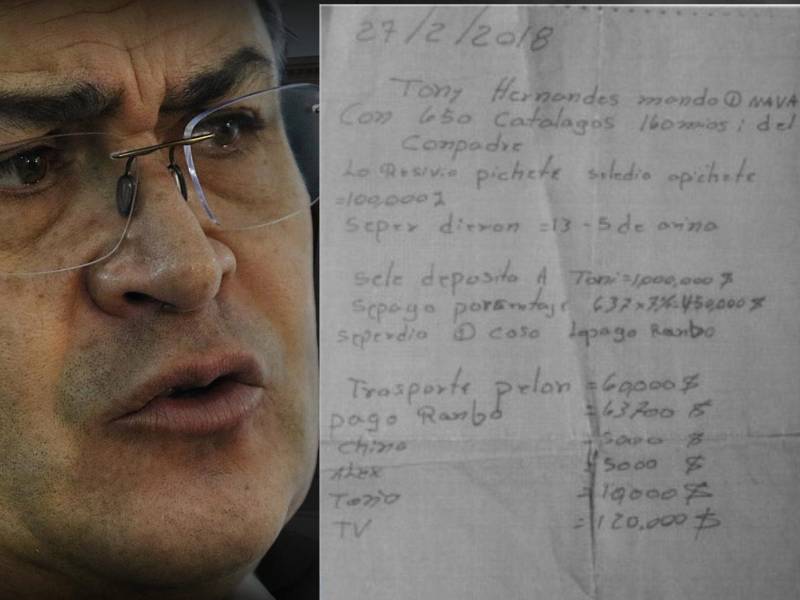 27/2/2018
Tony Hernandes mando ① NAVA
Con 650 Catalagos 160 mios; del
Conpadre
Lo Resivio pichete seledio apichete
=100,000 $
Seper dieron =13 - 5 de arina
Sele deposito A Toni=1,000,000 $
Sepago 637 450,000 $
seperdio ① coso lopago Ranbo
Trasporte pelon = 60,000 $
pago Ranbo = 63700 $
chino = 5000 $
ALEX = 5000 $
Tonio = 10,000 $
TV = 120,000 $